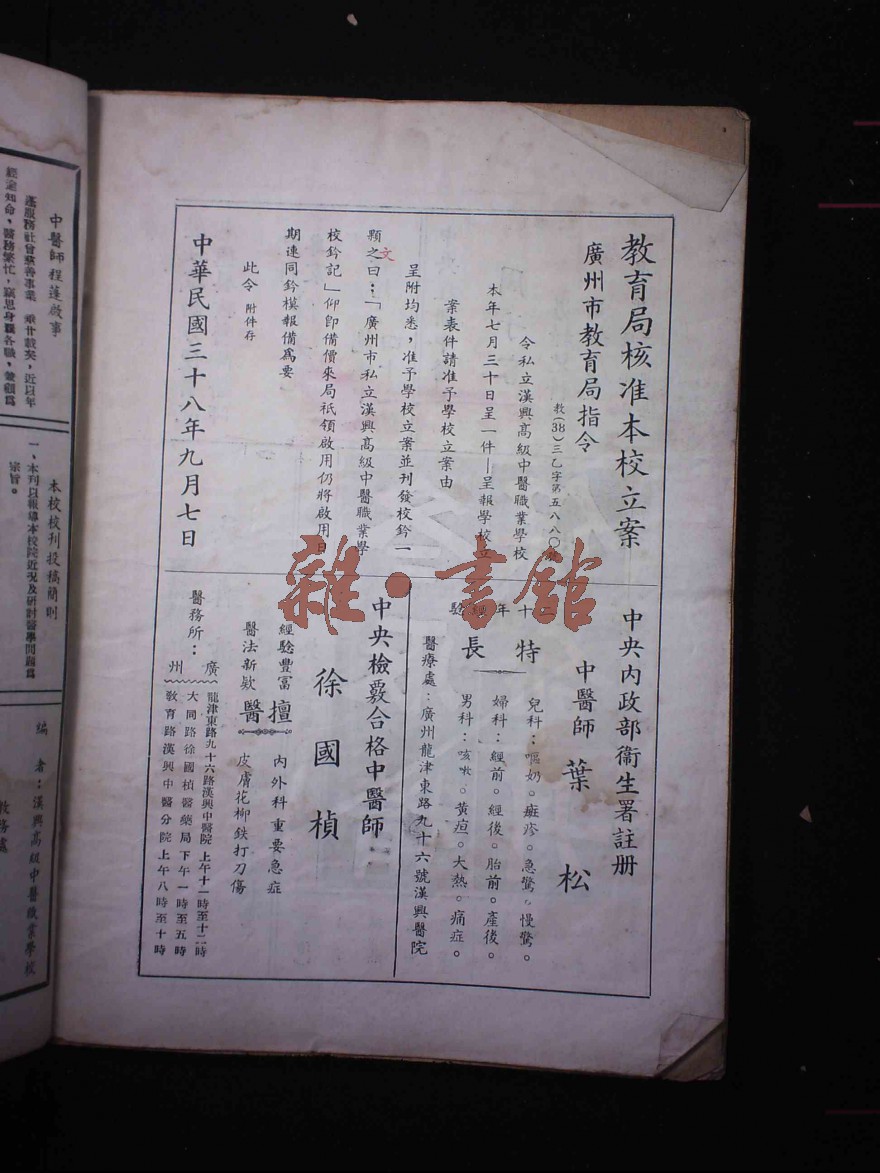 教育局核准本校立案
廣州市教育局指令
教(38)三乙字第五八八〇號
令私立漢興高級中醫職業學校
本年七月三十日呈一件—呈報學校立
案表件請准予學校立案由
呈附均悉，准予學校立案並刊發校鈐一
顆文之曰：「廣州市私立漢興高級中醫職業學
校鈐記」仰卽備價來局祇領啟用仍將啟用日
期連同鈐模報備爲要
此令 附件存
中華民國三十八年九月七日
中央內政部衞生署註册
中醫師 葉松
十年經驗
特長
兒科：嘔奶。痲疹。急驚。慢驚。
婦科：經前。經後。胎前。產後。
男科：咳嗽。黃疸。大熱。痛症。
醫療處：廣州龍津東路九十六號漢興醫院
中央檢覈合格中醫師
徐國楨
擅醫
內外科重要急症
皮膚花柳鉄打刀傷
經驗豐富
醫法新欵
醫務所：
廣州
龍津東路九十六路漢興中醫院 上午十一時至十二時
大同路徐國楨醫藥局 下午一時至五時
教育路漢興中醫分院 上午八時至十時
中醫師程蓬啟事
蓬服務社會慈善事業 垂廿載矣，近以年
經逾知命，醫務繁忙，竊思身羸各職，兼顧爲
本校校刊投稿簡則
一、本刋以報導本校院近況及研討醫學問題爲
宗旨。
編者：漢興高級中醫職業學校
教務處
雜·書館